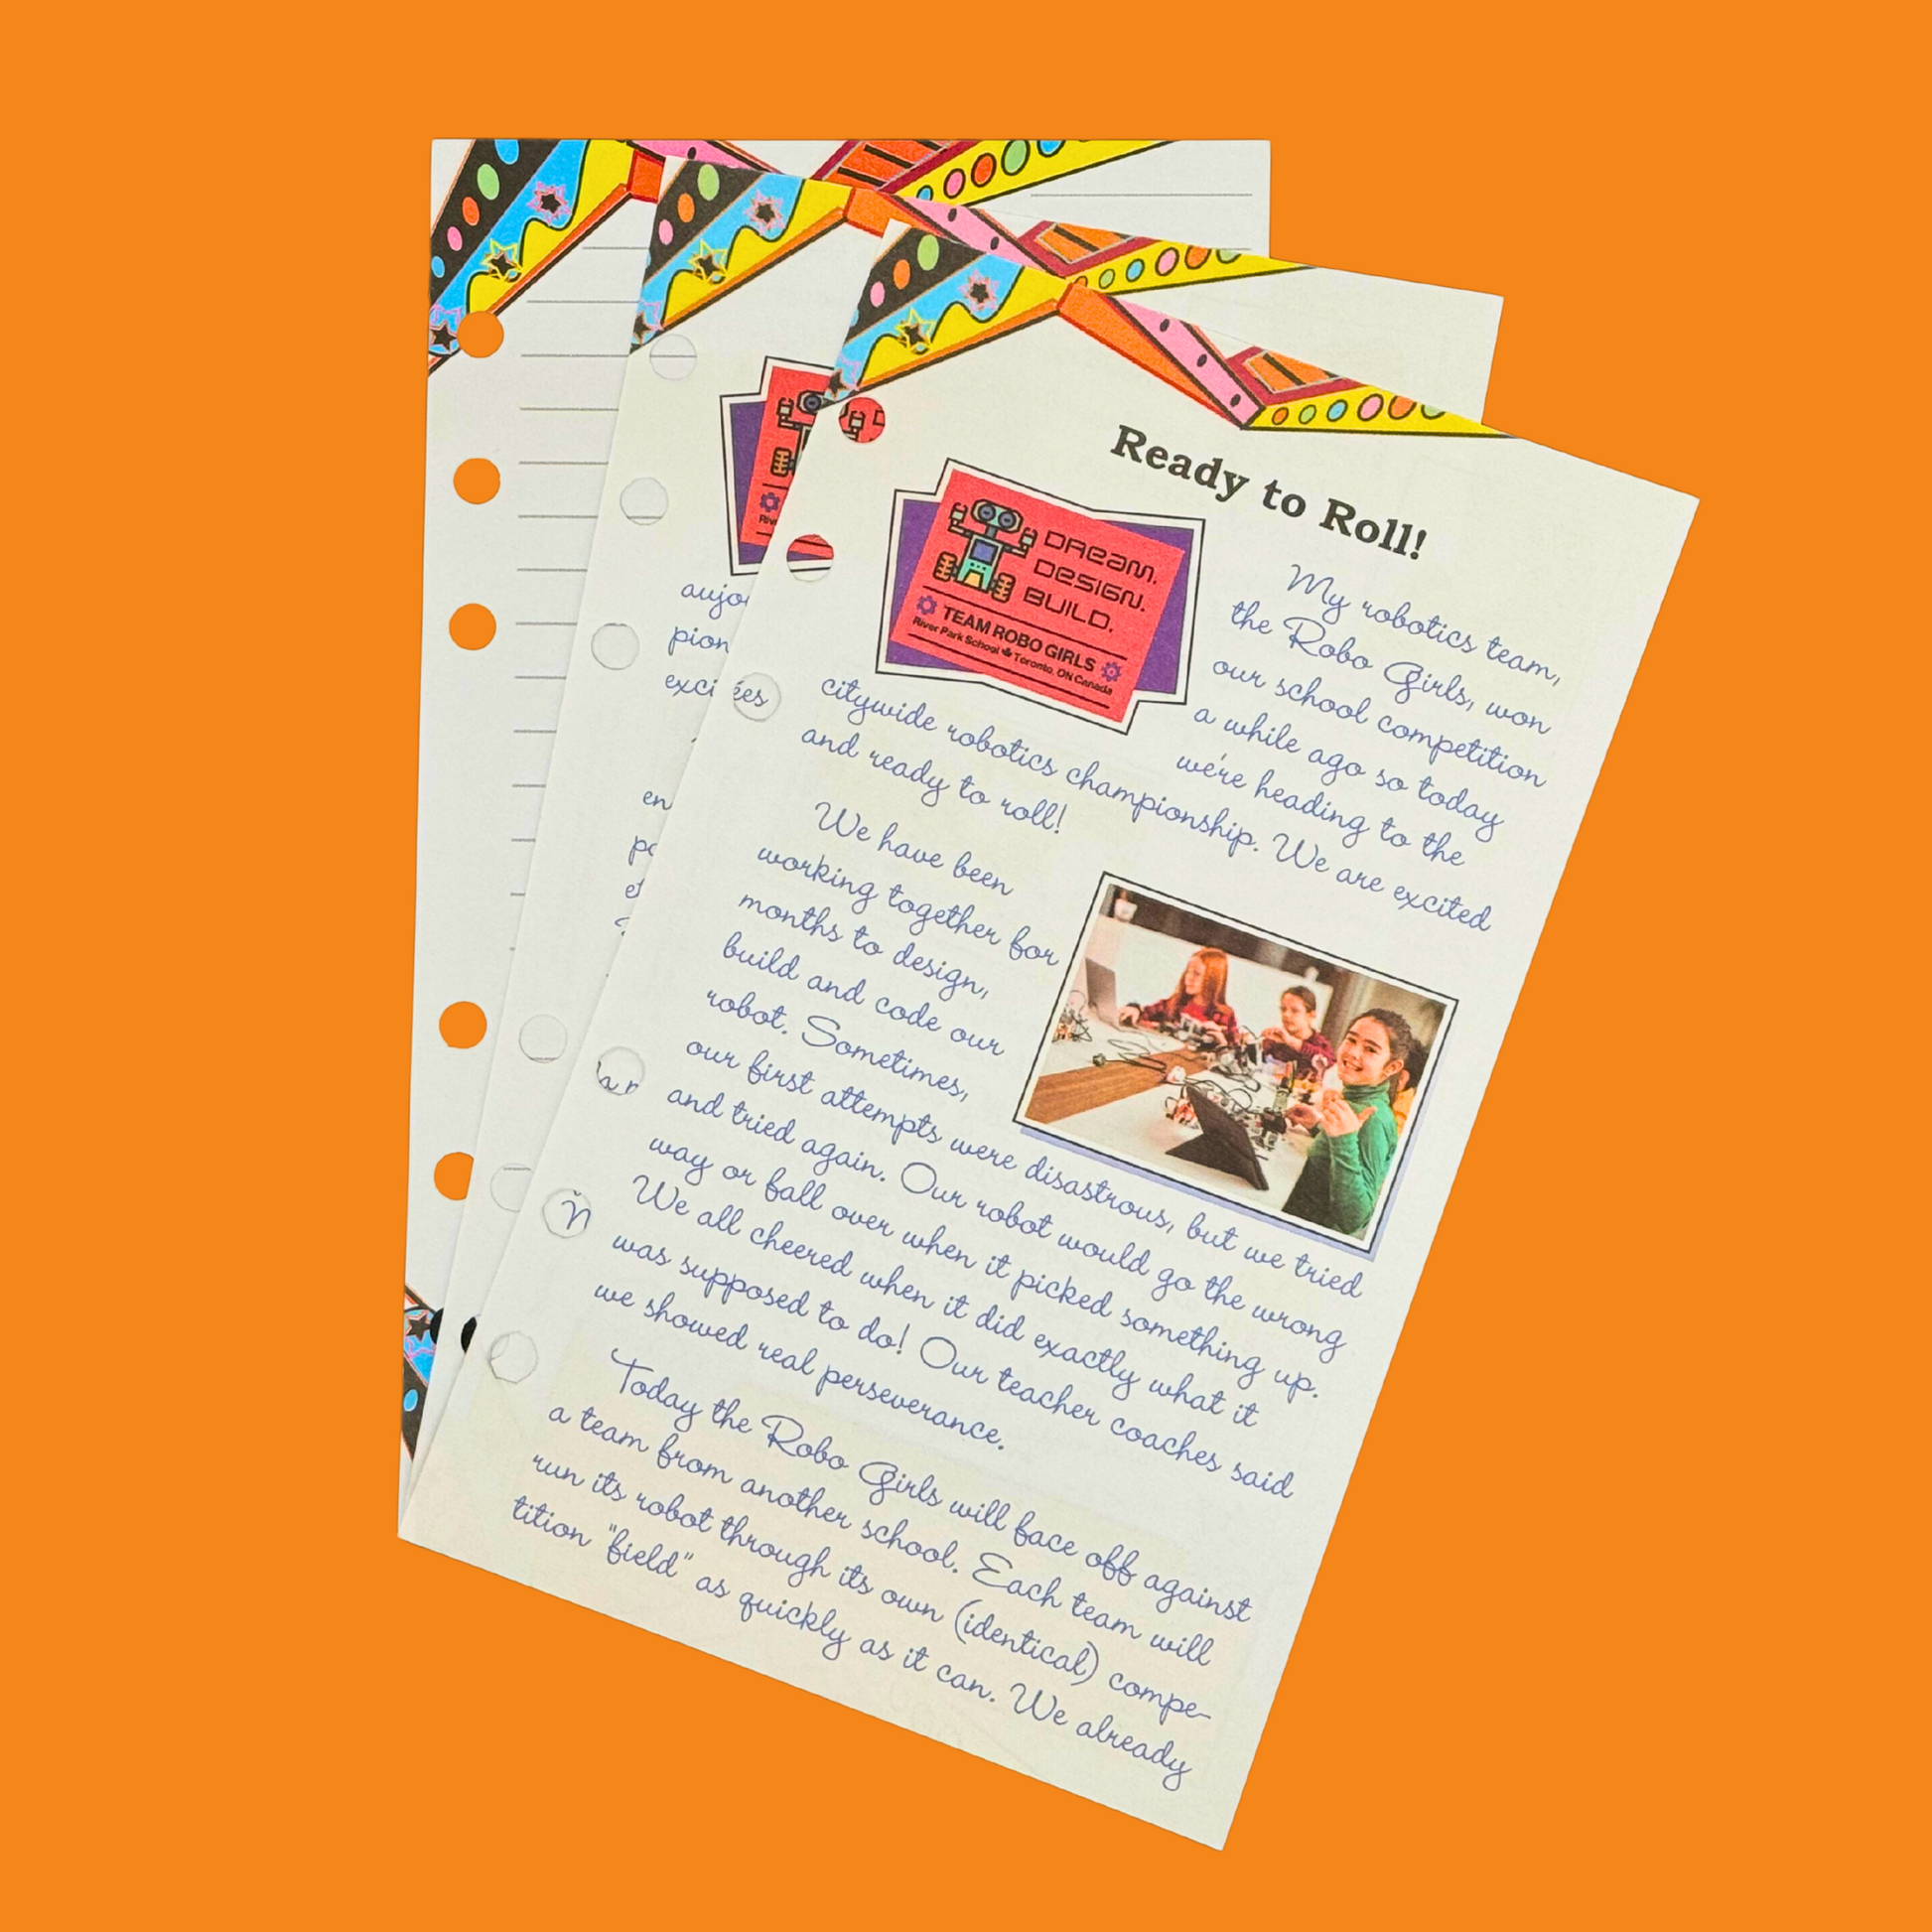 Ready to Roll!
DREAM.
DESIGN.
BUILD.
TEAM ROBO GIRLS
River Park School Toronto, ON Canada
My robotics team,
the Robo Girls, won
our school competition
a while ago so today
we're heading to the
citywide robotics championship. We are excited
and ready to roll!
We have been
working together for
months to design,
build and code our
robot. Sometimes,
our first attempts were disastrous, but we tried
and tried again. Our robot would go the wrong
way or fall over when it picked something up.
We all cheered when it did exactly what it
was supposed to do! Our teacher coaches said
we showed real perseverance.
Today the Robo Girls will face off against
a team from another school. Each team will
run its robot through its own (identical) compe-
tition "field" as quickly as it can. We already
aujo
pion
exci ées
en